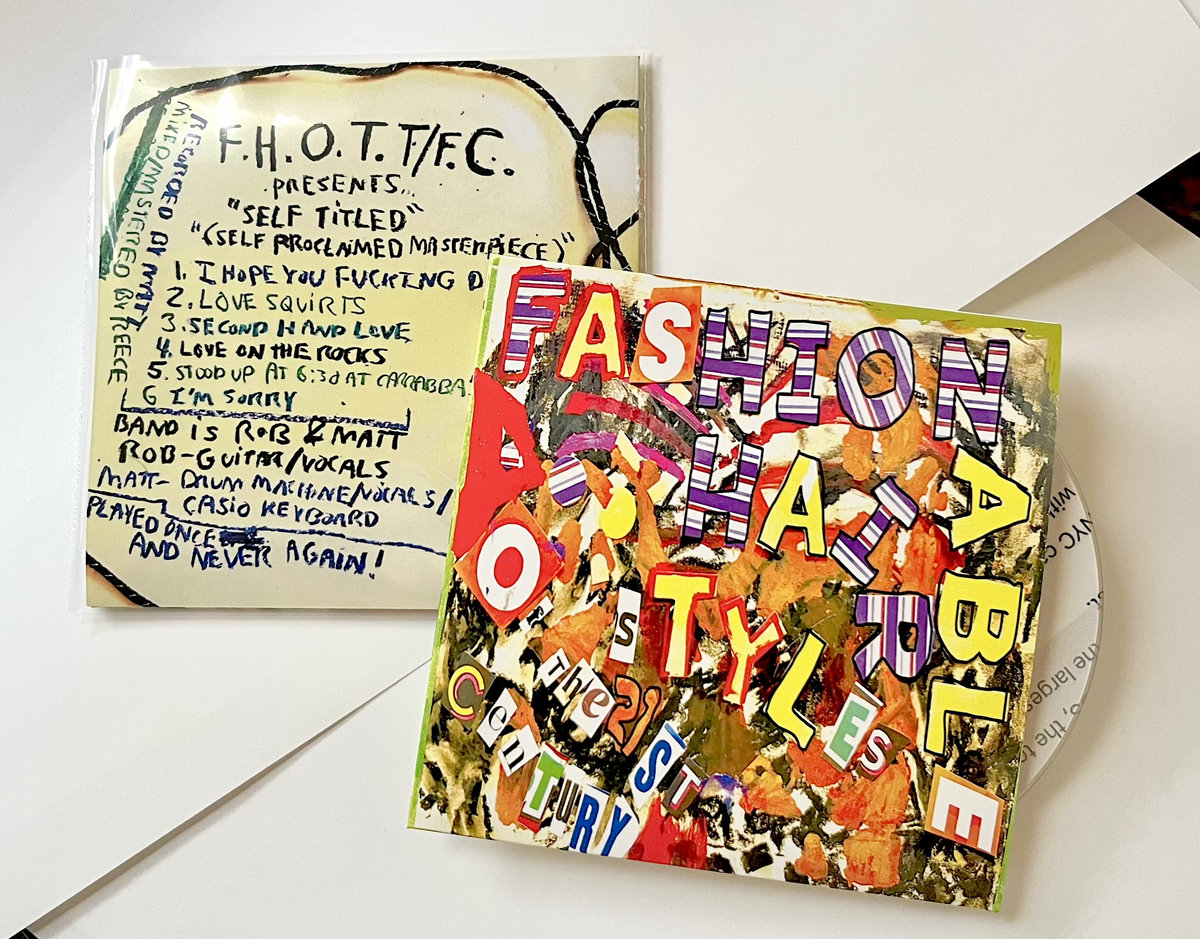 F.H.O.T.T/F.C.
PRESENTS...
"SELF TITLED"
"(SELF PROCLAIMED MASTERPIECE)"
1. I HOPE YOU FUCKING D
2. LOVE SQUIRTS
3. SECOND HAND LOVE
4. LOVE ON THE ROCKS
5. STOOD UP AT 6:30 AT CARRABBA'
6 I'M SORRY
BAND IS ROB & MATT
ROB-GUITAR/VOCALS
MATT- DRUM MACHINE/VOCALS/
CASIO KEYBOARD
PLAYED ONCE
AND NEVER AGAIN!
RECORDED BY MATT
MIXED/MASTERED BY REECE
FASHIONABLE
HAIR
DO
STYLES
OF
The 21ST
CenTURY
NYC
with
the larges
S, the to